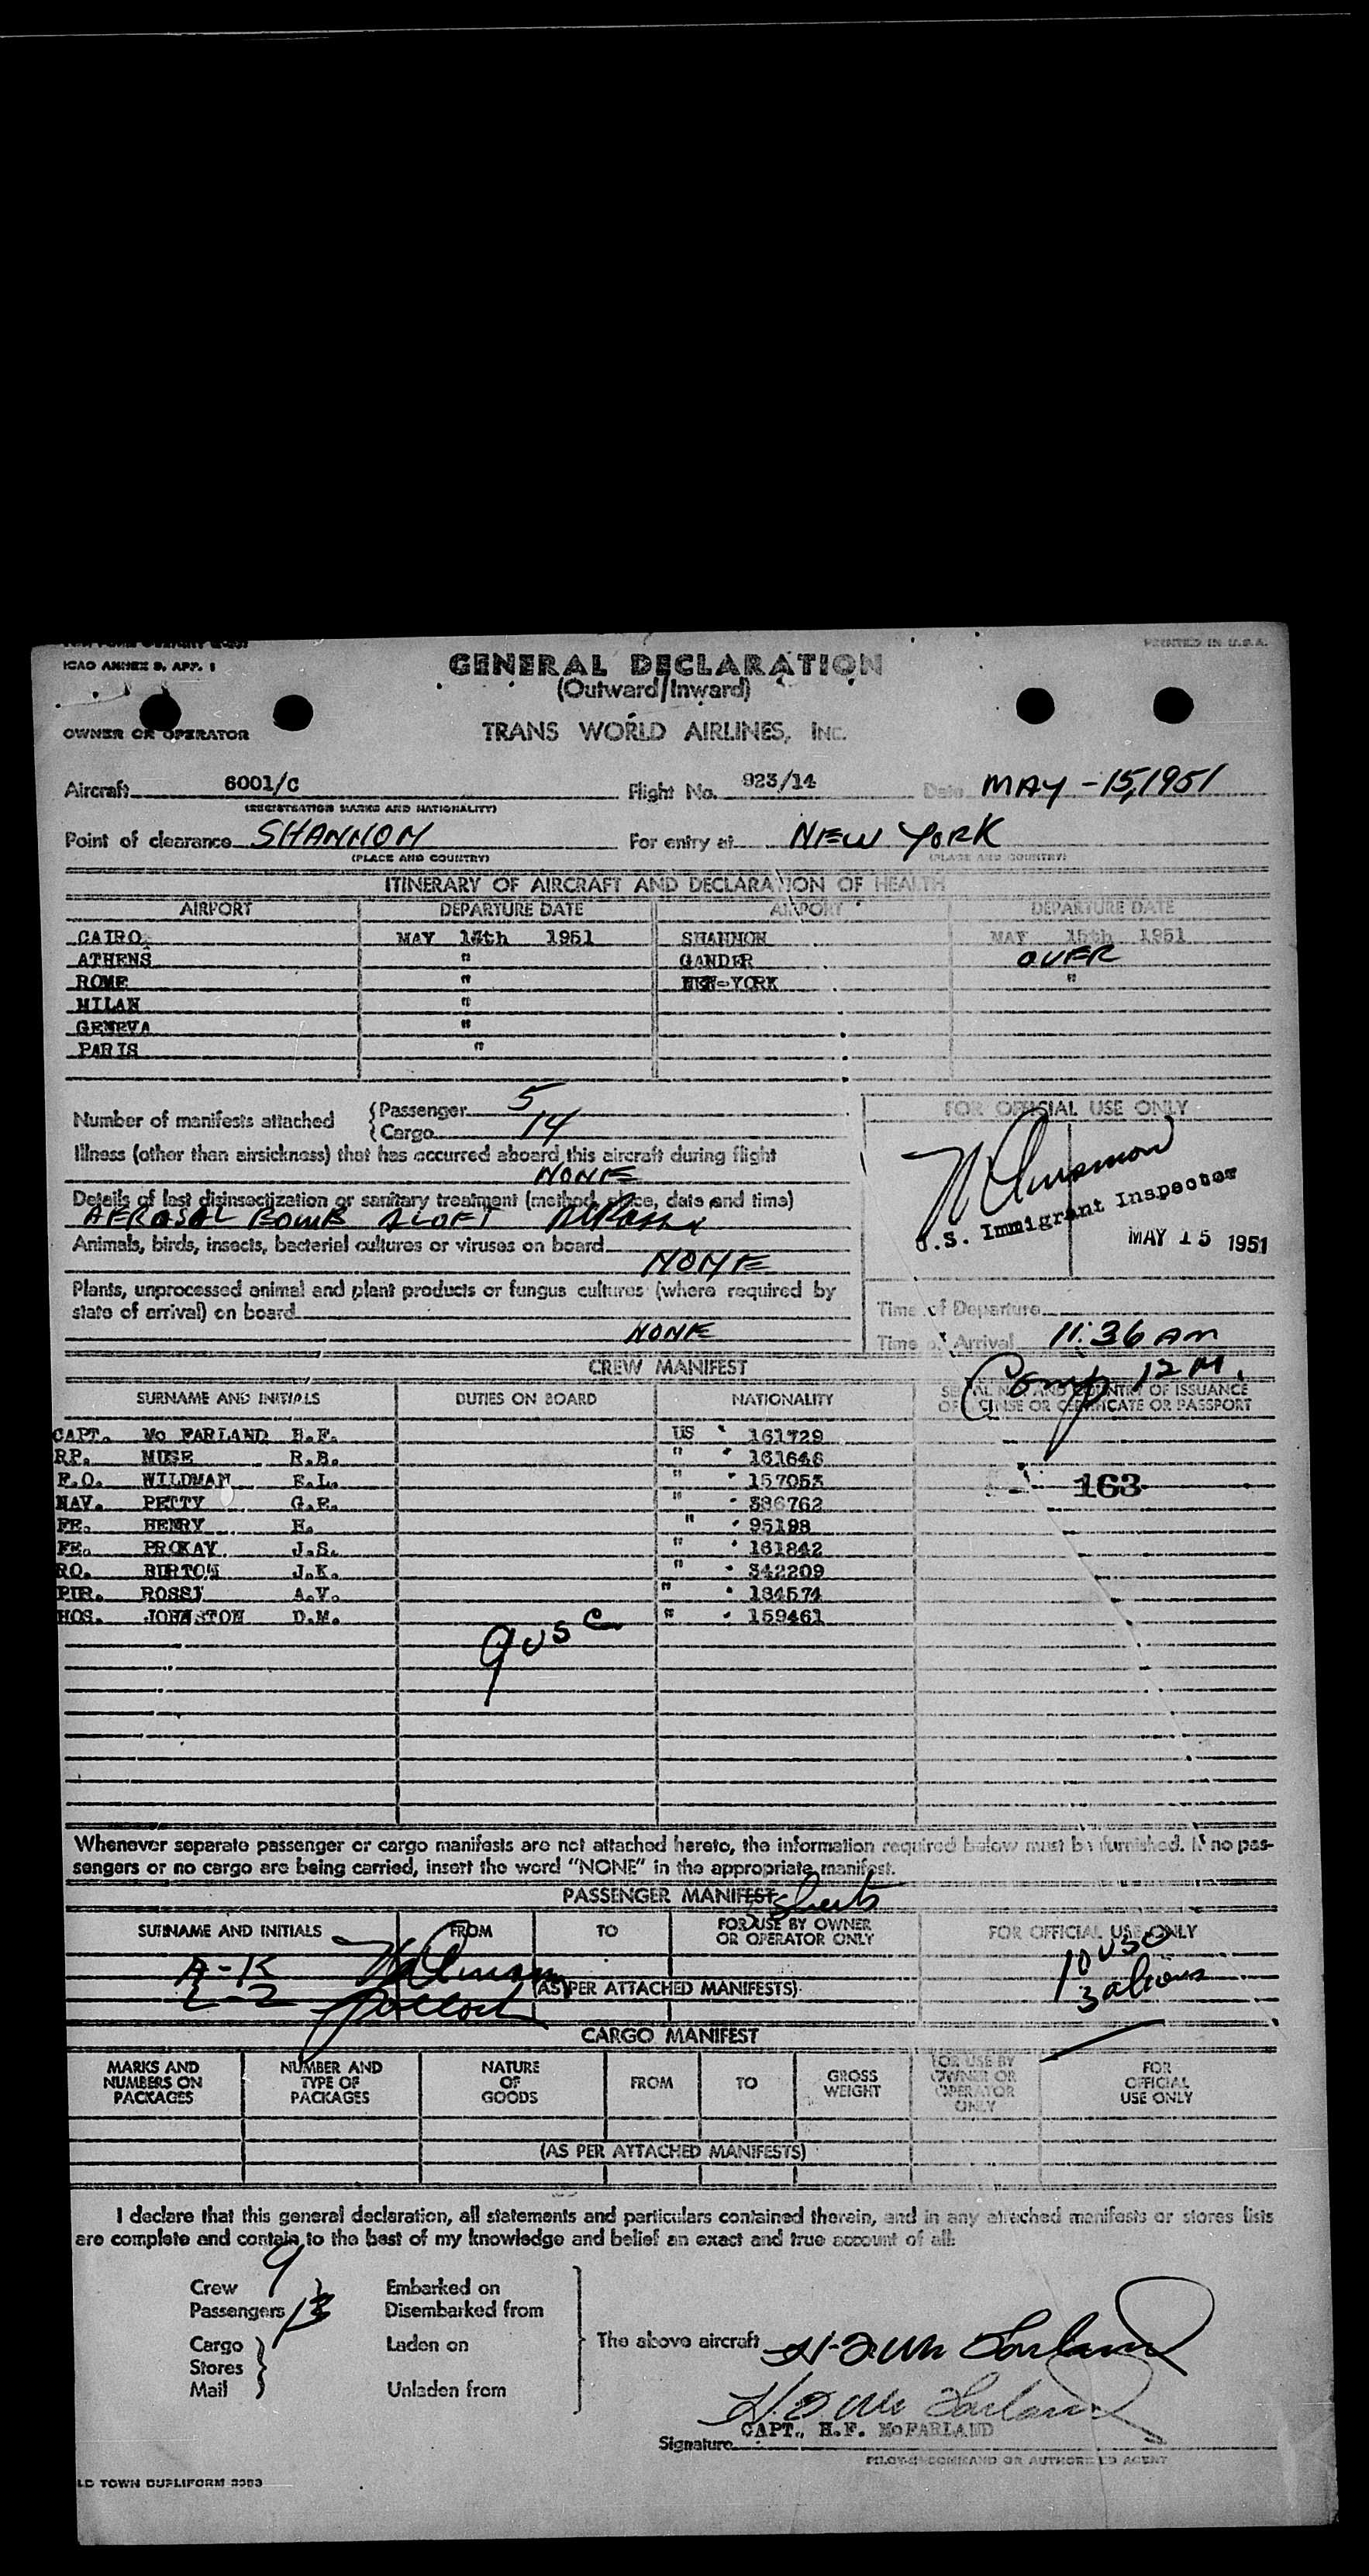 ICAO ANNEX 9, APP. 1
PRINTED IN U.S.A.
GENERAL DECLARATION
(Outward/Inward)
OWNER OR OPERATOR TRANS WORLD AIRLINES, INC.
Aircraft 6001/C Flight No. 923/14 Date MAY-15,1951
(REGISTRATION MARKS AND NATIONALITY)
Point of clearance SHANNON For entry at NEW YORK
(PLACE AND COUNTRY) (PLACE AND COUNTRY)
ITINERARY OF AIRCRAFT AND DECLARATION OF HEALTH
AIRPORT DEPARTURE DATE AIRPORT DEPARTURE DATE
CAIRO MAY 14th 1951 SHANNON MAY 15th 1951
ATHENS " GANDER OVER
ROME " NEW-YORK "
MILAN "
GENEVA "
PARIS "
Number of manifests attached {Passenger 5
{Cargo 14
FOR OFFICIAL USE ONLY
Illness (other than airsickness) that has occurred aboard this aircraft during flight
NONE
Details of last disinsectization or sanitary treatment (method, place, date and time)
AEROSAL BOMB ALOFT
U.S. Immigrant Inspector
MAY 15 1951
Animals, birds, insects, bacterial cultures or viruses on board
NONE
Plants, unprocessed animal and plant products or fungus cultures (where required by
state of arrival) on board
NONE
Time of Departure
Time of Arrival 11:36 AM
Comp 12 M.
CREW MANIFEST
SURNAME AND INITIALS DUTIES ON BOARD NATIONALITY SERIAL NO. AND COUNTRY OF ISSUANCE
OF LICENSE OR CERTIFICATE OR PASSPORT
CAPT. Mc FARLAND H.F. US 161729
RP. MUSE R.B. " 161646
F.O. WILDMAN E.L. " 157053
NAV. PETTY G.E. " 386762
FE. HENRY H. " 95198
FE. PROKAY J.S. " 161842
RO. BURTON J.K. " 342209
PUR. ROSSI A.V. " 184574
HOS. JOHNSTON D.M. " 159461
163
9 USC
Whenever separate passenger or cargo manifests are not attached hereto, the information required below must be furnished. If no pas-
sengers or no cargo are being carried, insert the word "NONE" in the appropriate manifest.
PASSENGER MANIFEST Sheets
SURNAME AND INITIALS FROM TO FOR USE BY OWNER
OR OPERATOR ONLY FOR OFFICIAL USE ONLY
A-K
L-Z
(AS PER ATTACHED MANIFESTS)
10 USC
3 aliens
CARGO MANIFEST
MARKS AND
NUMBERS ON
PACKAGES
NUMBER AND
TYPE OF
PACKAGES
NATURE
OF
GOODS
FROM
TO
GROSS
WEIGHT
FOR USE BY
OWNER OR
OPERATOR
ONLY
FOR
OFFICIAL
USE ONLY
(AS PER ATTACHED MANIFESTS)
I declare that this general declaration, all statements and particulars contained therein, and in any attached manifests or stores lists
are complete and contain to the best of my knowledge and belief an exact and true account of all:
Crew 9 Embarked on
Passengers 13 Disembarked from
Cargo Laden on
Stores
Mail Unladen from
The above aircraft H.F. Mc Farland
H.F. Mc Farland
CAPT., H.F. McFARLAND
Signature
PILOT-IN-COMMAND OR AUTHORIZED AGENT
LD TOWN DUPLIFORM 3383